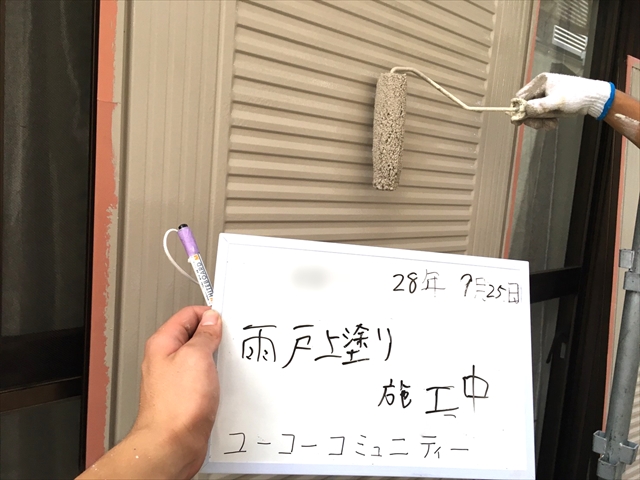 28年 9月25日
雨戸上塗り
施工中
ユーコーコミュニティー